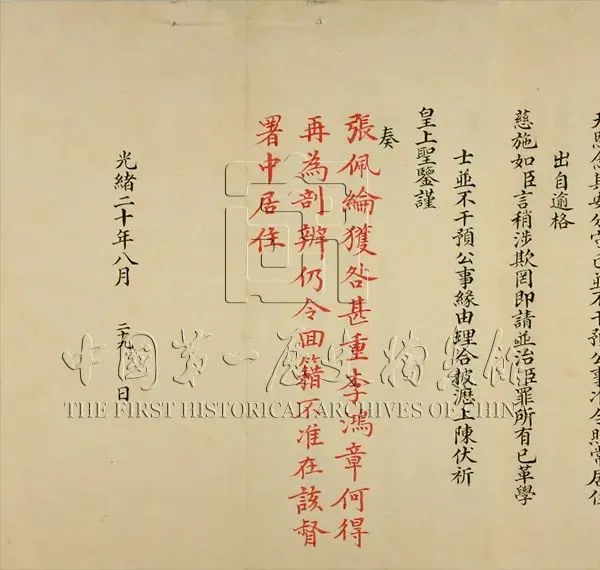 天恩念其安分守己並不干預公事准令照常居住
出自逾格
慈施如臣言稍涉欺罔即請並治臣罪所有已革學
士並不干預公事緣由理合披瀝上陳伏祈
皇上聖鑒謹
奏
張佩綸獲咎甚重李鴻章何得
再為剖辨仍令回籍不准在該督
署中居住
光緒二十年八月 二十九 日
中國第一歷史檔案館
THE FIRST HISTORICAL ARCHIVES OF CHINA